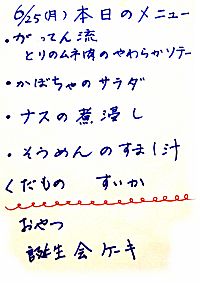 6/25(月)本日のメニュー
・がってん流
とりのムネ肉のやわらかソテー
・かぼちゃのサラダ
・ナスの煮浸し
・そうめんのすまし汁
くだもの すいか
おやつ
誕生会ケーキ